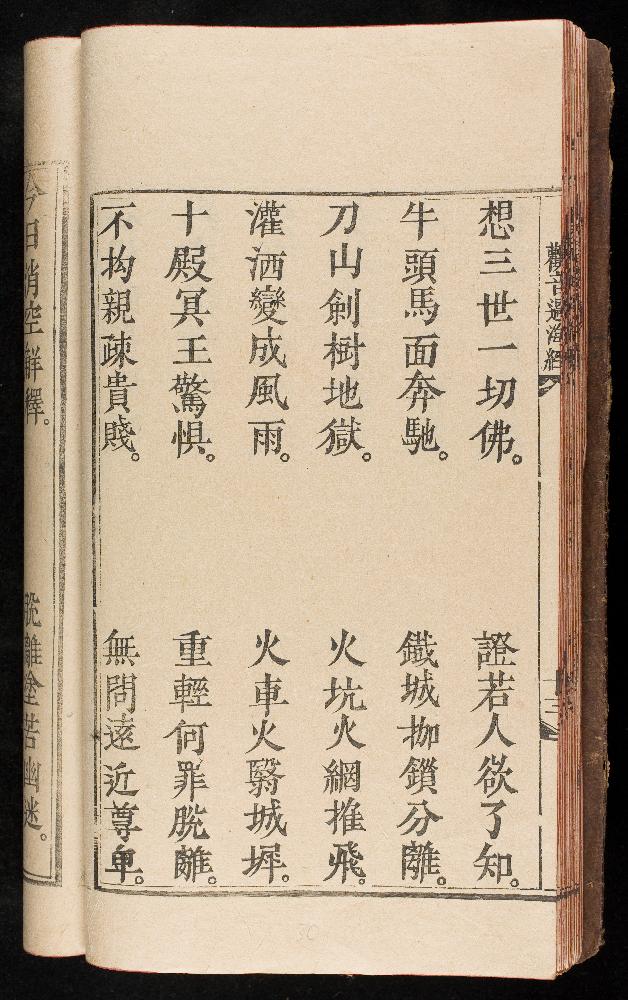 觀音過海經
想三世一切佛。
證若人欲了知。
牛頭馬面奔馳。
鐵城枷鎖分離。
刀山劍樹地獄。
火坑火網推飛。
灌洒變成風雨。
火車火翳城墀。
十殿冥王驚惧。
重輕何罪脫離。
不拘親疎貴賤。
無問遠近尊卑。
今日消空解釋。
脫離塗苦幽迷。